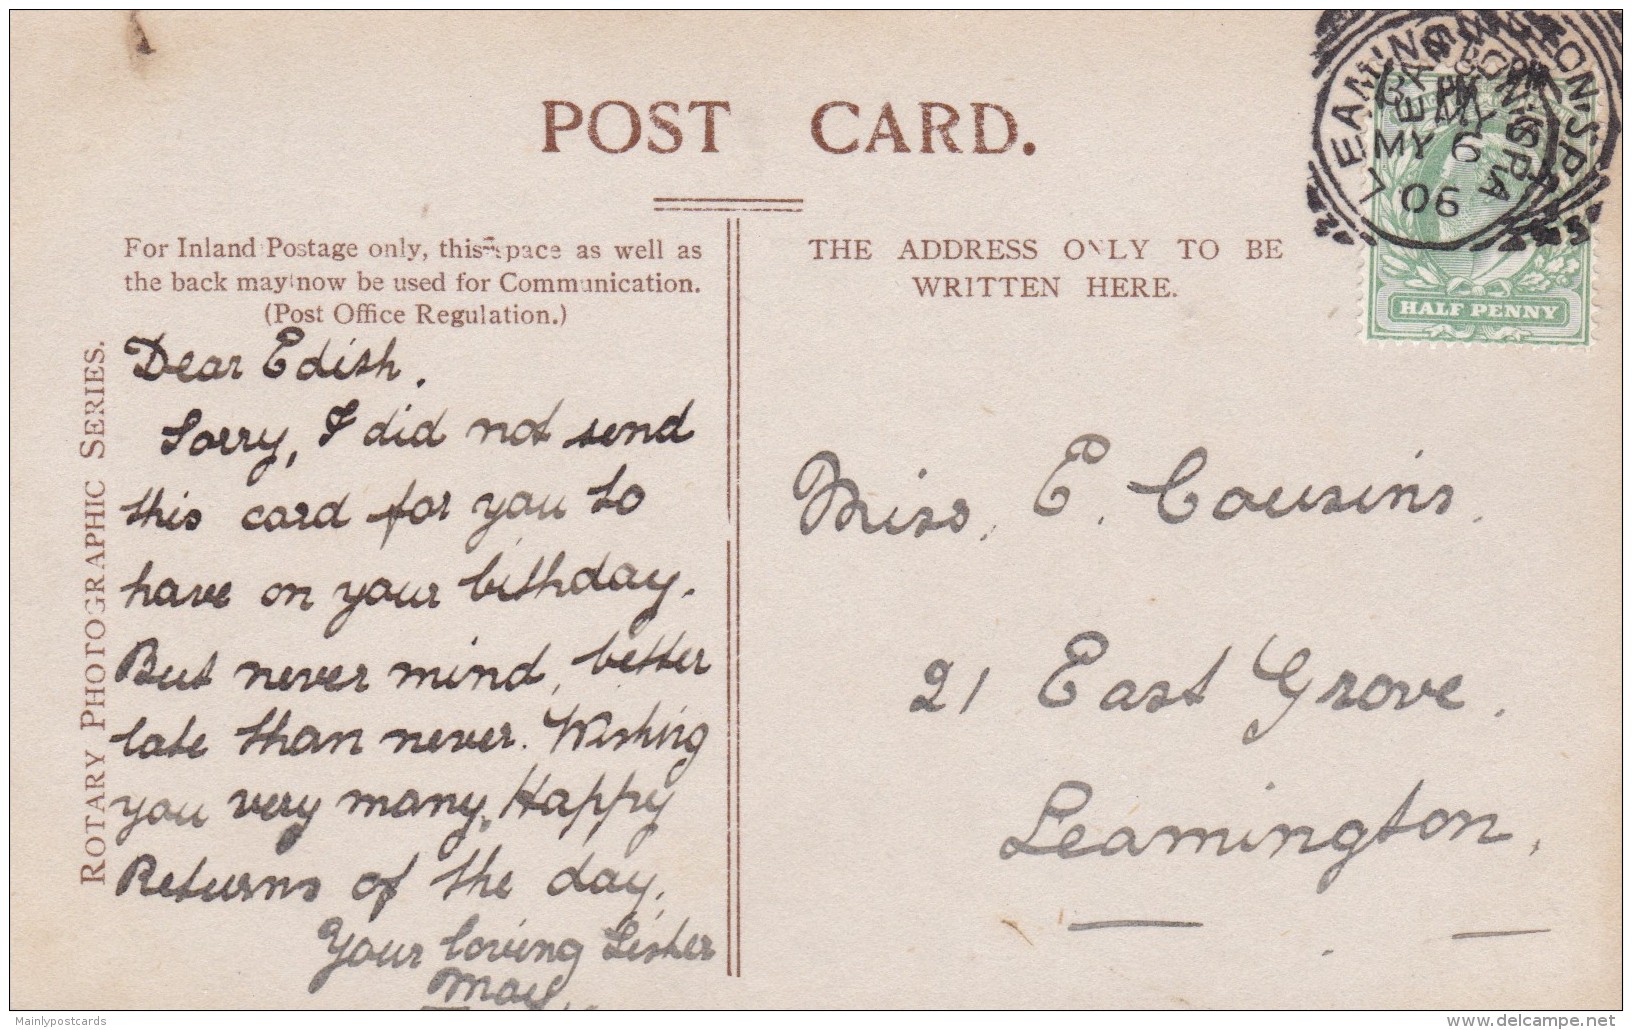 POST CARD.
For Inland Postage only, this space as well as
the back may now be used for Communication.
(Post Office Regulation.)
THE ADDRESS ONLY TO BE
WRITTEN HERE.
ROTARY PHOTOGRAPHIC SERIES.
LEAMINGTON SPA
MY 6
06
HALF PENNY
Dear Edith.
Sorry, I did not send
this card for you to
have on your bithday.
But never mind, better
late than never. Wishing
you very many, Happy
Returns of the day.
Your loving Sister
May.
Miss, E. Cousins.
21 East Grove.
Leamington.
Mainlypostcards
delcampe.net